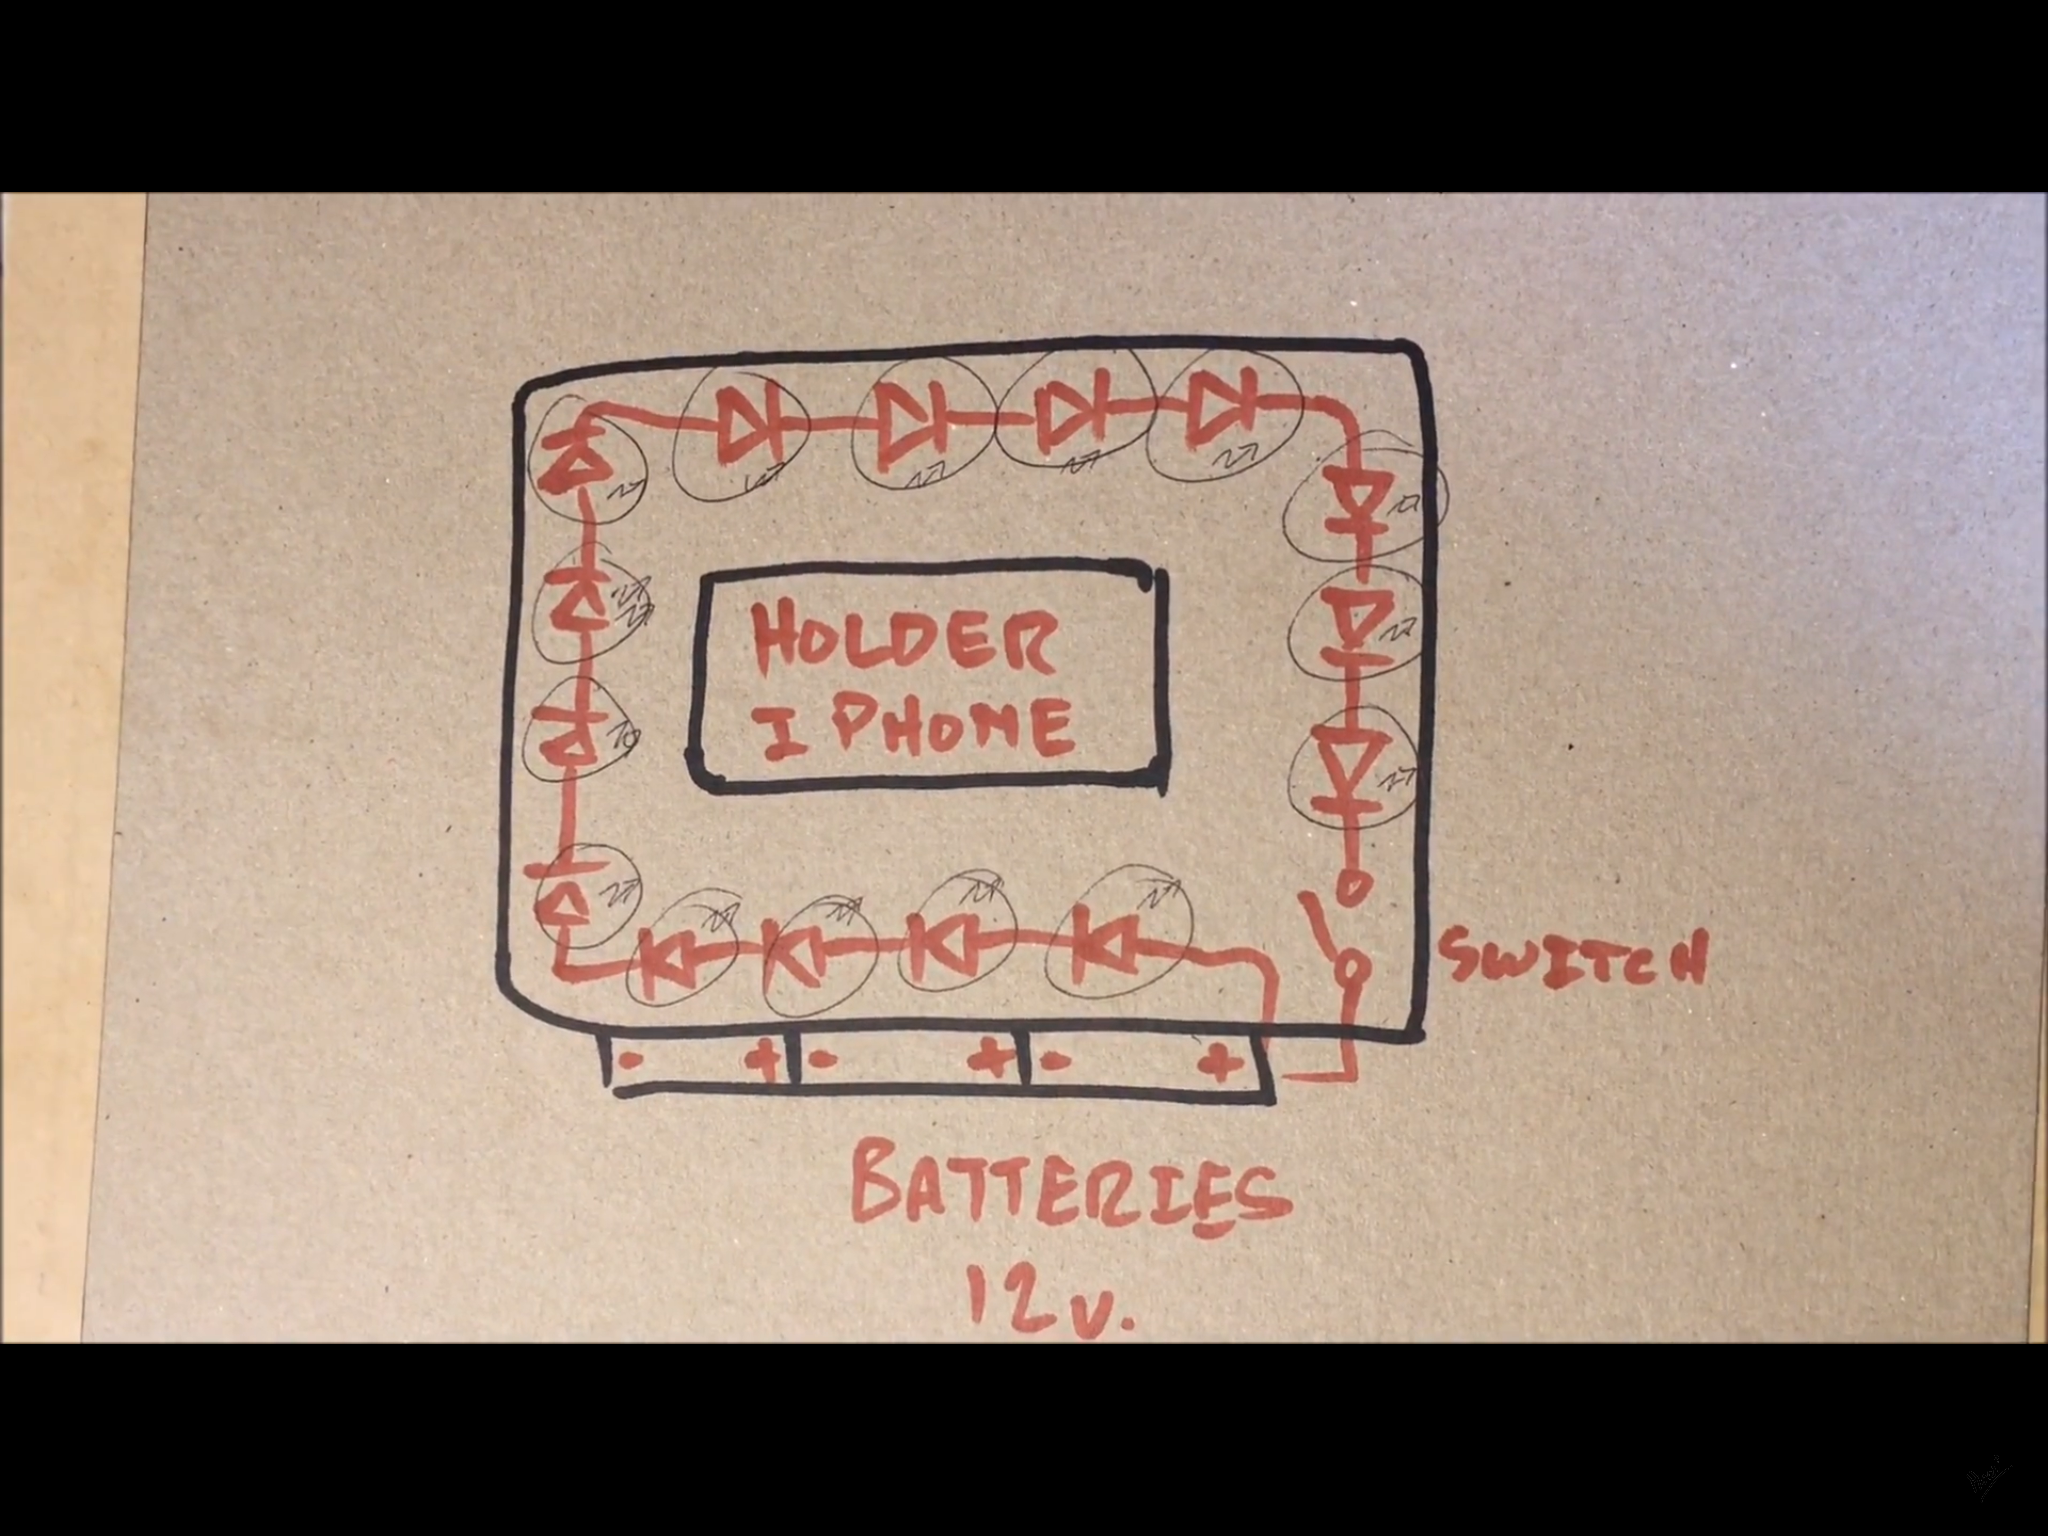 HOLDER
IPHONE
SWITCH
- + - + - +
BATTERIES
12v.